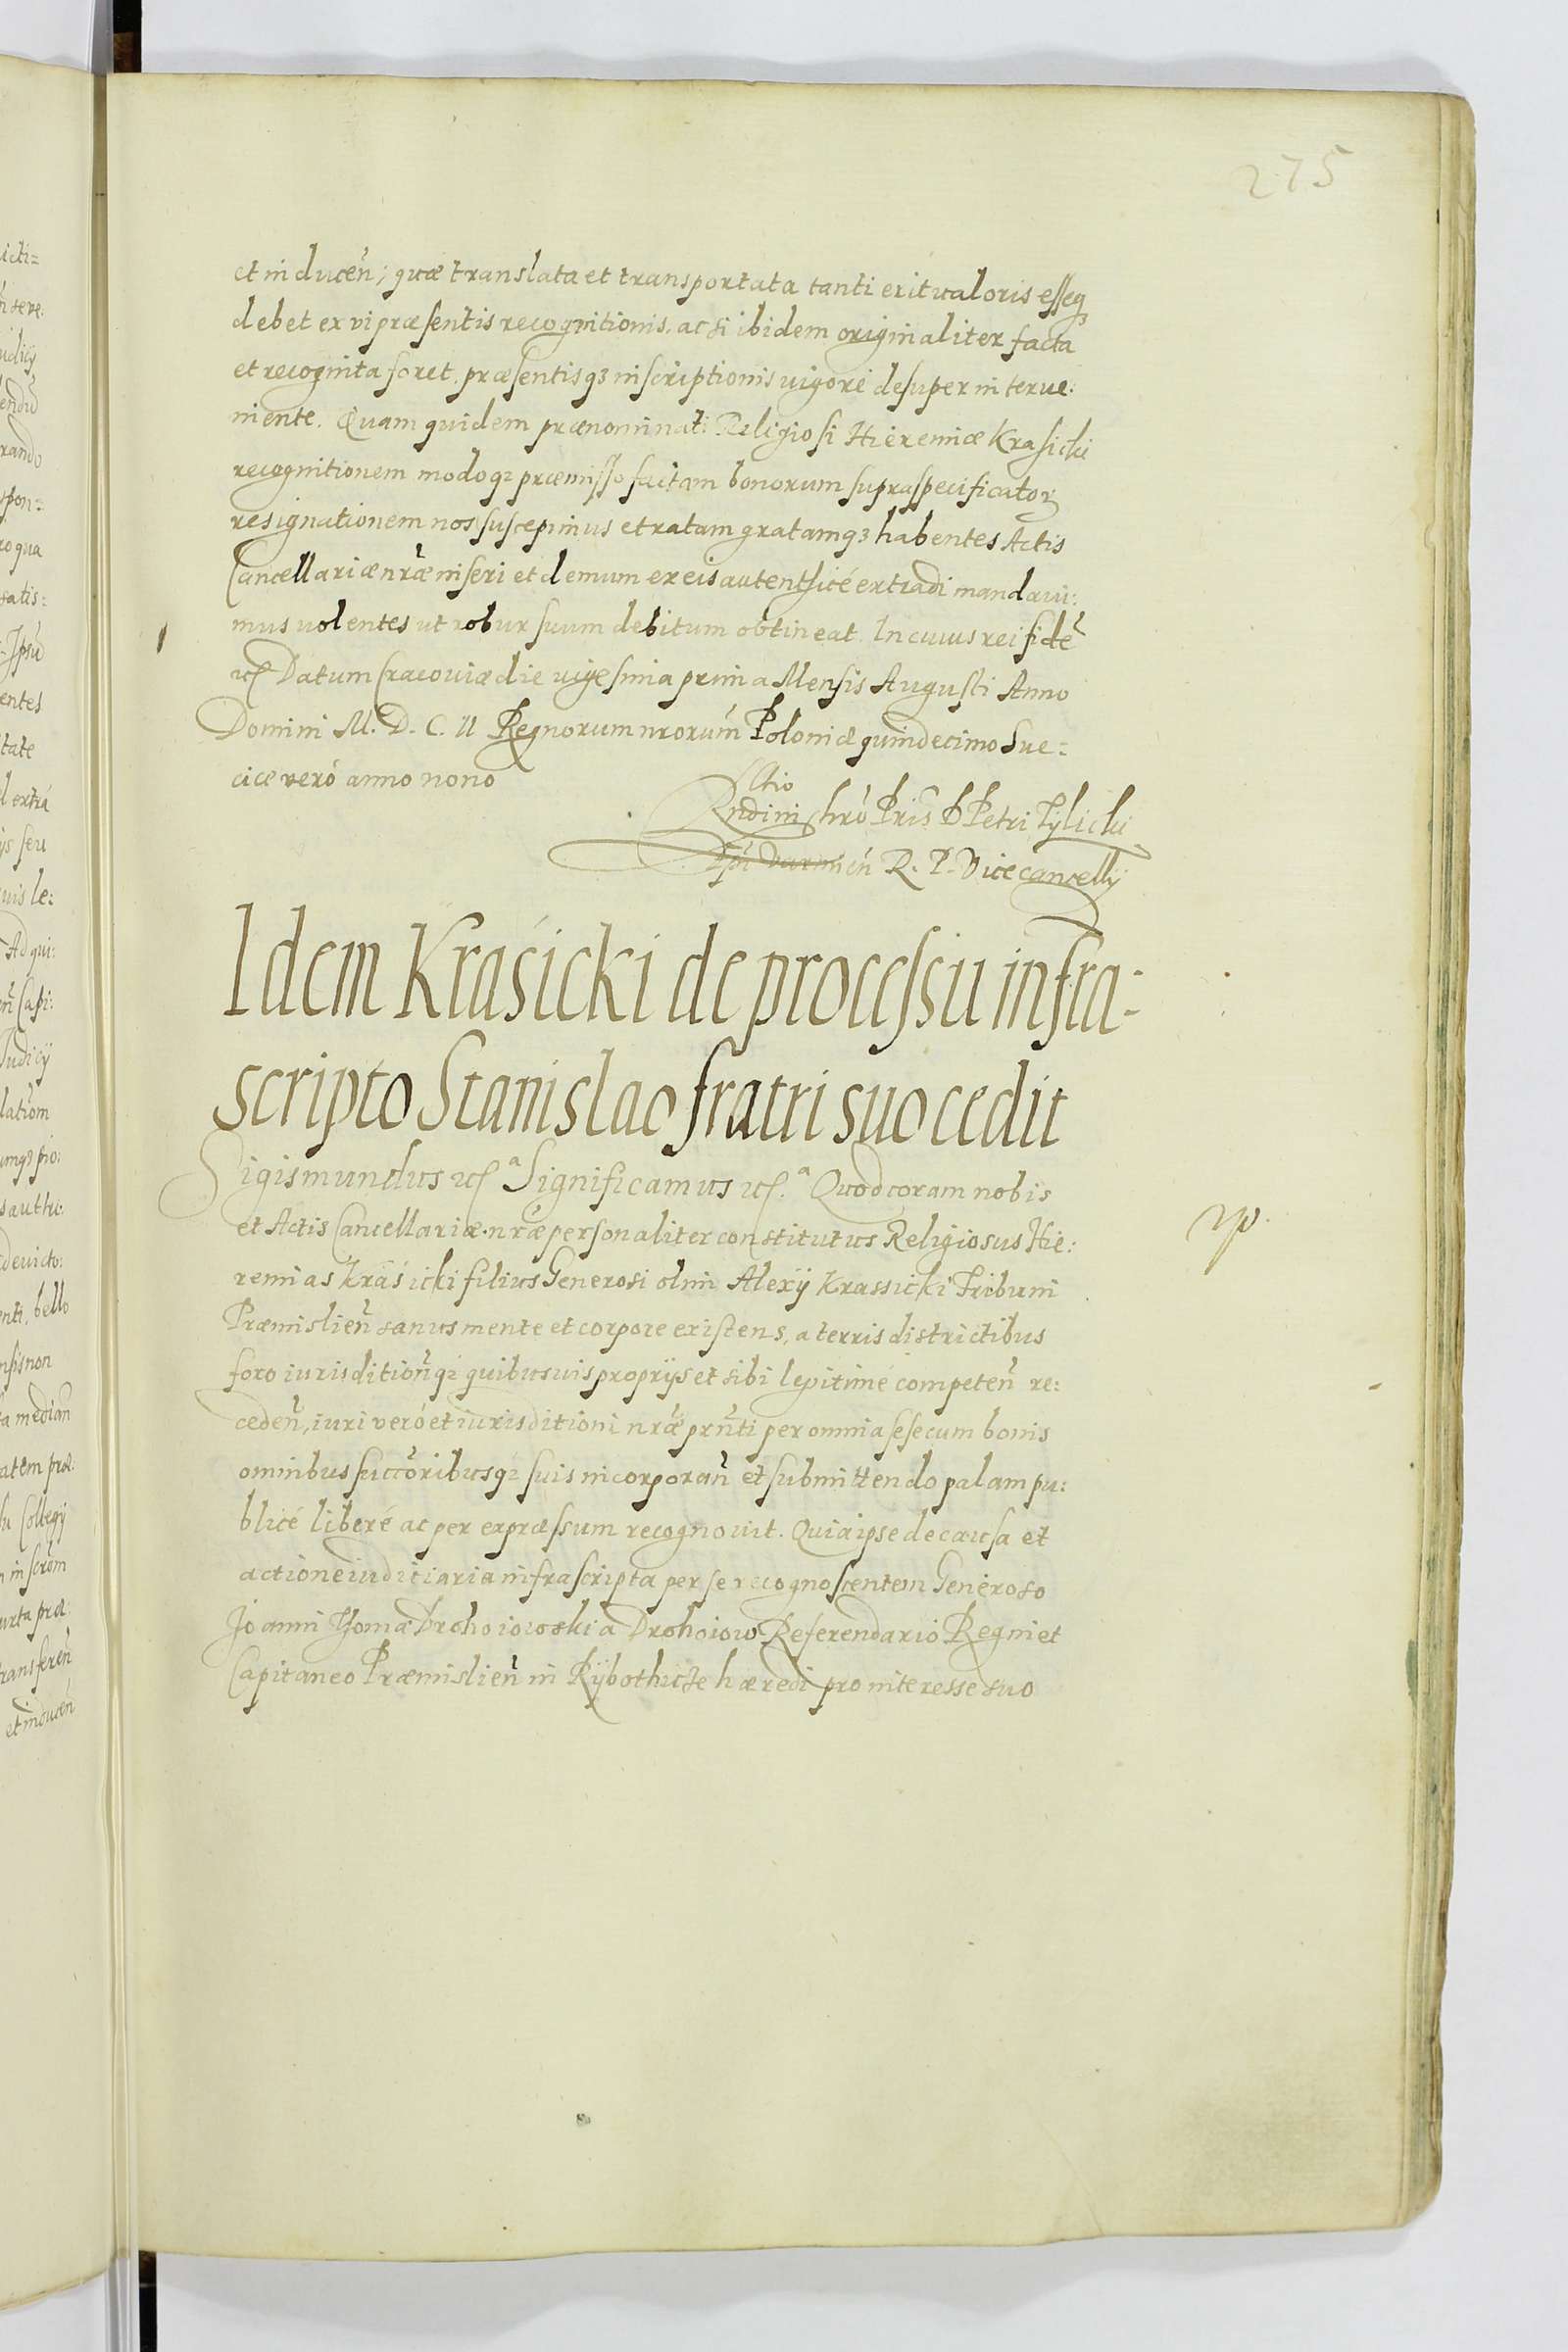 275
et inducen̄; quæ translata et transportata tanti erit ualoris esseqꝫ
debet ex vi præsentis recognitionis. ac si ibidem originaliter facta
et recognita foret. præsentisqꝫ inscriptionis uigore desuper interue:
niente. Quam quidem prænominati Religiosi Hieremiæ Krasicki
recognitionem modoqꝫ præmisso factam bonorum supraspecificatoꝝ
resignationem nos suscepimus et ratam gratamqꝫ habentes Actis
Cancellariæ nr̄æ inseri et demum ex eis autenthicé extradi mandaui:
mus uolentes ut robur suum debitum obtineat. In cuius rei fidē
etc̄ Datum Cracouiæ die uigesima prima Mensis Augusti Anno
Domini M. D. C. II Regnorum nrorum̄ Poloniæ quindecimo Sue=
ciæ veró anno nono
Rndini Chrō Pris D Petri Tylicki
Epī Varmien̄ R. P. Vicecancellij
Idem Kraśicki de processu infra=
scripto Stanislao fratri suo cedit
Sigismundus etc̄ᵃ Significamus etc̄.ᵃ Quod coram nobis
et Actis Cancellariæ nr̄æ personaliter constitutus Religiosus Hie:
remias Kraśicki filius Generosi olim Alexij Krassicki Tribuni
Præmislien̄ sanus mente et corpore existens, a terris districtibus
foro iurisdition̄qꝫ quibusuis proprijs et sibi legitimé competen̄ re:
ceden̄, iuri veró et iurisditioni nr̄æ prn̄ti per omnia sese cum bonis
ominibus succōribusqꝫ suis incorporan̄ et submittendo palam pu:
blicé liberé ac per expræssum recognouit. Quia ipse de causa et
actione iuditiaria infrascripta per se recognoscentem Generoso
Joanni Thomæ Drohoiowski a Drohoiow Referendario Regni et
Capitaneo Præmislien̄ in Rÿbothicze hæredi pro interesse suo